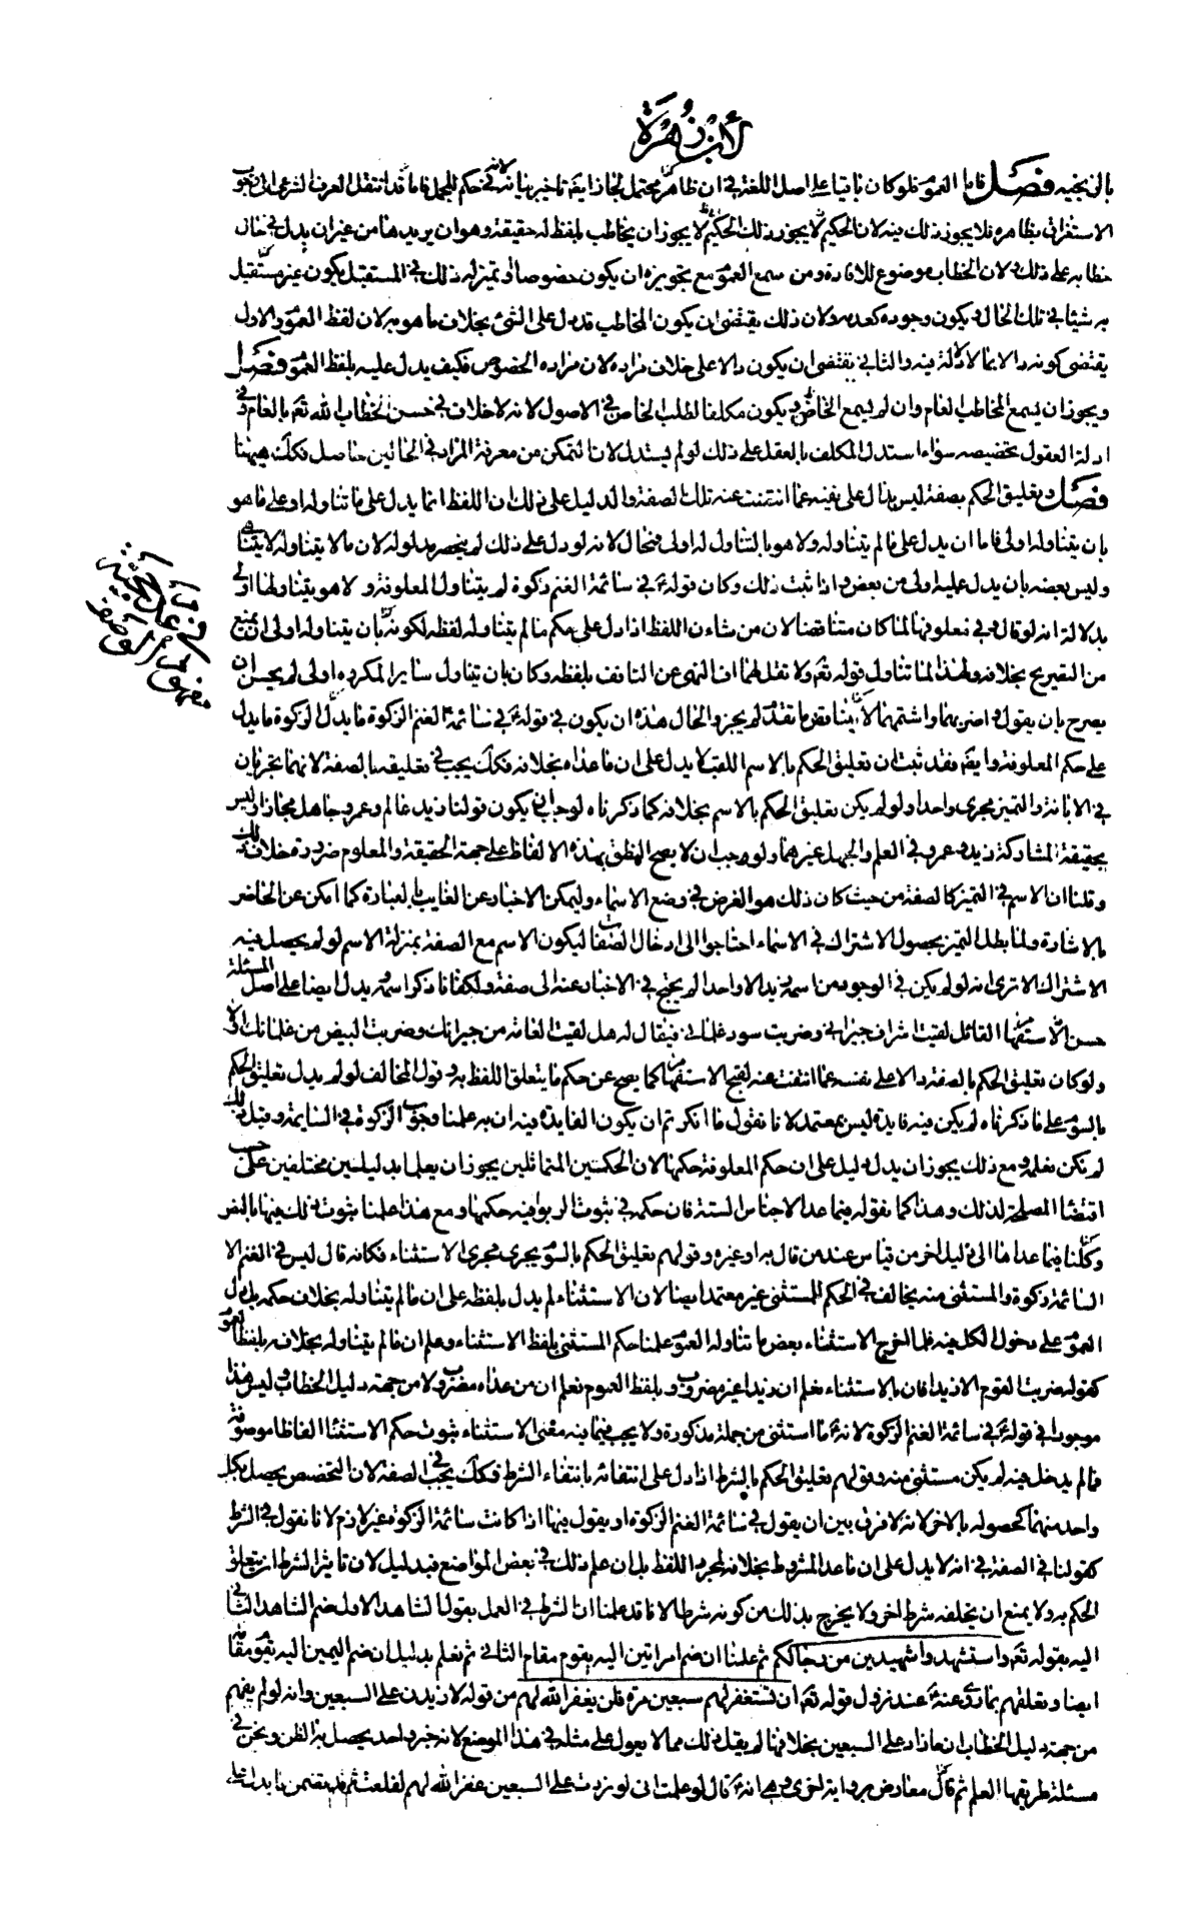 لابن زهرة
بالنخبيه فصل فاما العموم فلو كان باقيا على اصل اللغة في ان ظاهره محتمل لجاز ايضا تاخير بيانه لانه في حكم المجمل فاما قد انتقل العرف الشرعى الى وجوب
الاستغراق بظاهره فلا يجوز ذلك فيه لان الحكيم لا يجوز ان يخاطب بلفظ له حقيقة وهو ان يريدها من غير ان يدل في حال
خطابه على ذلك ولان الخطاب موضوع للافادة ومن سمع العموم مع تجويزه ان يكون خصوصا وتميز له ذلك في المستقبل يكون غير مستفيد
به شيئا في تلك الحال ويكون وجوده كعدمه ولان ذلك يقتضى ان يكون المخاطب قد دل على الشئ بخلاف ما هو به لان لفظ العموم الاول
يقتضى كونه دالا بما لا دلالة فيه والثانى يقتضى ان يكون دالا على خلاف مراده لان مراده الخصوص فكيف يدل عليه بلفظ العموم فصل
ويجوز ان يسمع المخاطب العام وان لم يسمع الخاص ويكون مكلفا لطلب الخاص في الاصول لانه لا خلاف في حسن الخطاب الله تعم بالعام وفى
ادلة العقول تخصيصه سواء استدل المكلف بالعقل على ذلك او لم يستدل لان التمكن من معرفة المراد في الحالين حاصل فكك هيهنا
فصل وتعليق الحكم بصفة ليس يدل على نفيه عما انتفت عنه تلك الصفة والدليل على ذلك ان اللفظ انما يدل على ما تناوله او على ما هو
بان يتناوله اولى فاما ان يدل على ما لم يتناوله ولا هو بالتناول له اولى فمحال لانه لو دل على ذلك لم ينحصر مدلوله لان ما لا يتناوله لا يتناهى
وليس بعضه بان يدل عليه اولى من بعض واذا ثبت ذلك وكان قوله ع في سائمة الغنم زكوة لم يتناول المعلوفة ولا هو يتناولها اولى
بدلالة انه لو قال وفى معلوفتها لما كان متناقضا لان من شان اللفظ اذا دل على حكم ما لم يتناوله لفظه لكونه بان يتناوله اولى ان يمنع
من التصريح بخلافه ولهذا لما تناول قوله تعم ولا تقل لهما اف النهى عن التافف بلفظه وكان بان يتناول ساير المكروه اولى لم يحسن ان
يصرح بان يقول واضربهما واشتمهما لانه يناقض ما تقدم لم يجز والحال هذه ان يكون في قوله ع في سائمة الغنم الزكوة ما يدل
على حكم المعلوفة وايضا فقد ثبت ان تعليق الحكم بالاسم اللقب لا يدل على ان ما عداه بخلافه فكك يجب في تعليقه بالصفة لانهما يجريان
في الابانة والتميز مجرى واحدا ولو لم يكن تعليق الحكم بالاسم بخلافه كما ذكرناه لوجب ان يكون قولنا زيد عالم وعمرو جاهل مجازا وليس
بحقيقة المشاركة زيد وعمرو في العلم والجهل غيرهما ولوجب ان لا يصح النطق بهذه الالفاظ على جهة الحقيقة والمعلوم ضرورة خلاف ذلك
وقلنا ان الاسم في التميز كالصفة من حيث كان ذلك هو الغرض في وضع الاسماء وليمكن الاخبار عن الغايب بالعبارة كما امكن عن الحاضر
بالاشارة ولما بطل التميز بحصول الاشتراك في الاسماء احتاجوا الى ادخال الصفات ليكون الاسم مع الصفة بمنزلة الاسم لو لم يحصل فيه
الاشتراك الا ترى انه لو لم يكن في الوجود من اسمه زيد الا واحد لم يحتج في الاخبار عنه الى صفة ولكفانا ذكر اسمه ويدل ايضا على اصل المسئلة
حسن الاستفهام القائل لقيت اشراف جيرانى وضربت سود غلمانى فيقال له هل لقيت العامة من جيرانك وضربت البيض من غلمانك ام لا
ولو كان تعليق الحكم بالصفة دالا على نفسه عما انتفت عنه لقبح الاستفهام كما يصح عن حكم ما يتعلق اللفظ به وقول المخالف لو لم يدل تعليق الحكم
بالسوم على ما ذكرناه لم يكن فيه فايدة ليس بمعتمد لانا نقول ما انكرتم ان يكون الفايدة فيه ان به علمنا وجوب الزكوة في السايمة وقبل ذلك
لم نكن نعلمه ومع ذلك يجوز ان يدل دليل على ان حكم المعلوفة حكمها لان الحكمين المتماثلين يجوز ان يعلما بدليلين مختلفين على حسب
اقتضاء المصلحة لذلك وهذا كما نقوله فيما عدا الاجناس الستة فان حكمه في ثبوت الربوا فيه حكمها ومع هذا علمنا ثبوت ذلك فيها بالنص
وكلنا فيما عداها الى دليل اخر من قياس عند من قال به او غيره وقولهم تعليق الحكم بالسوم يجرى مجرى الاستثناء فكانه قال ليس في الغنم الا
السائمة زكوة والمستثنى منه يخالف في الحكم للمستثنى غير معتمد ايضا لان الاستثناء لم يدل بلفظه على ان ما لم يتناوله بخلاف حكمه بل دل
العموم على دخول الكل فيه فلما اخرج الاستثناء بعض ما تناوله العموم علمنا حكم المستثنى بلفظ الاستثناء وعلم ان ما لم يتناوله بخلافه بلفظ العموم
كقوله ضربت القوم الا زيدا فان بالاستثناء نعلم ان زيدا غير مضروب وبلفظ العموم نعلم ان من عداه مضروب ولا من جهة دليل الخطاب وليس هذا
موجودا في قوله ع في سائمة الغنم الزكوة لانه ع ما استثنى من جملة مذكورة ولا يجب فيما فيه معنى الاستثناء ثبوت حكم الاستثناء الفاظا موصوفة
فما لم يدخل فيه لم يكن مستثنى منه وقولهم تعليق الحكم بالشرط اذا دل على انتفائه بانتفاء الشرط فكك يجب في الصفة لان التخصص يحصل بكل
واحد منهما كحصوله بالاخر لانه لا فرق بين ان يقول في سائمة الغنم الزكوة او يقول فيها اذا كانت سائمة الزكوة غير لازم لانا نقول في الشرط
كقولنا في الصفة في انه لا يدل على ان ما عدا المشروط بخلافه لمجرد اللفظ بل ان علم ذلك في بعض المواضع فبدليل لان تاثير الشرط ان يتعلق
الحكم به ولا يمنع ان يخلفه شرط اخر ولا يخرج بذلك من كونه شرطا الا ترى قد علمنا ان الشرط في العمل بقول الشاهد الاول ضم الشاهد الثانى
اليه بقوله تعم واستشهدوا شهيدين من رجالكم ثم علمنا ان ضم امراتين اليه يقوم مقام الثانى ثم نعلم بدليل ان ضم اليمين اليه يقوم مقامه
ايضا وتعلقهم بما روى عنه ع عند نزول قوله تعم ان تستغفر لهم سبعين مرة فلن يغفر الله لهم من قوله لازيدن على السبعين وانه لو لم يفهم
من جهة دليل الخطاب ان ما زاد على السبعين بخلافها لم يقل ذلك مما لا يعول على مثله في هذا الموضع لانه خبر واحد يحصل به الظن ونحن في
مسئلة طريقها العلم ثم قال معارض برواية اخرى وهى انه ع قال لو علمت انى لو زدت على السبعين غفر الله لهم لفعلت
في عدم حجية
مفهوم الوصف